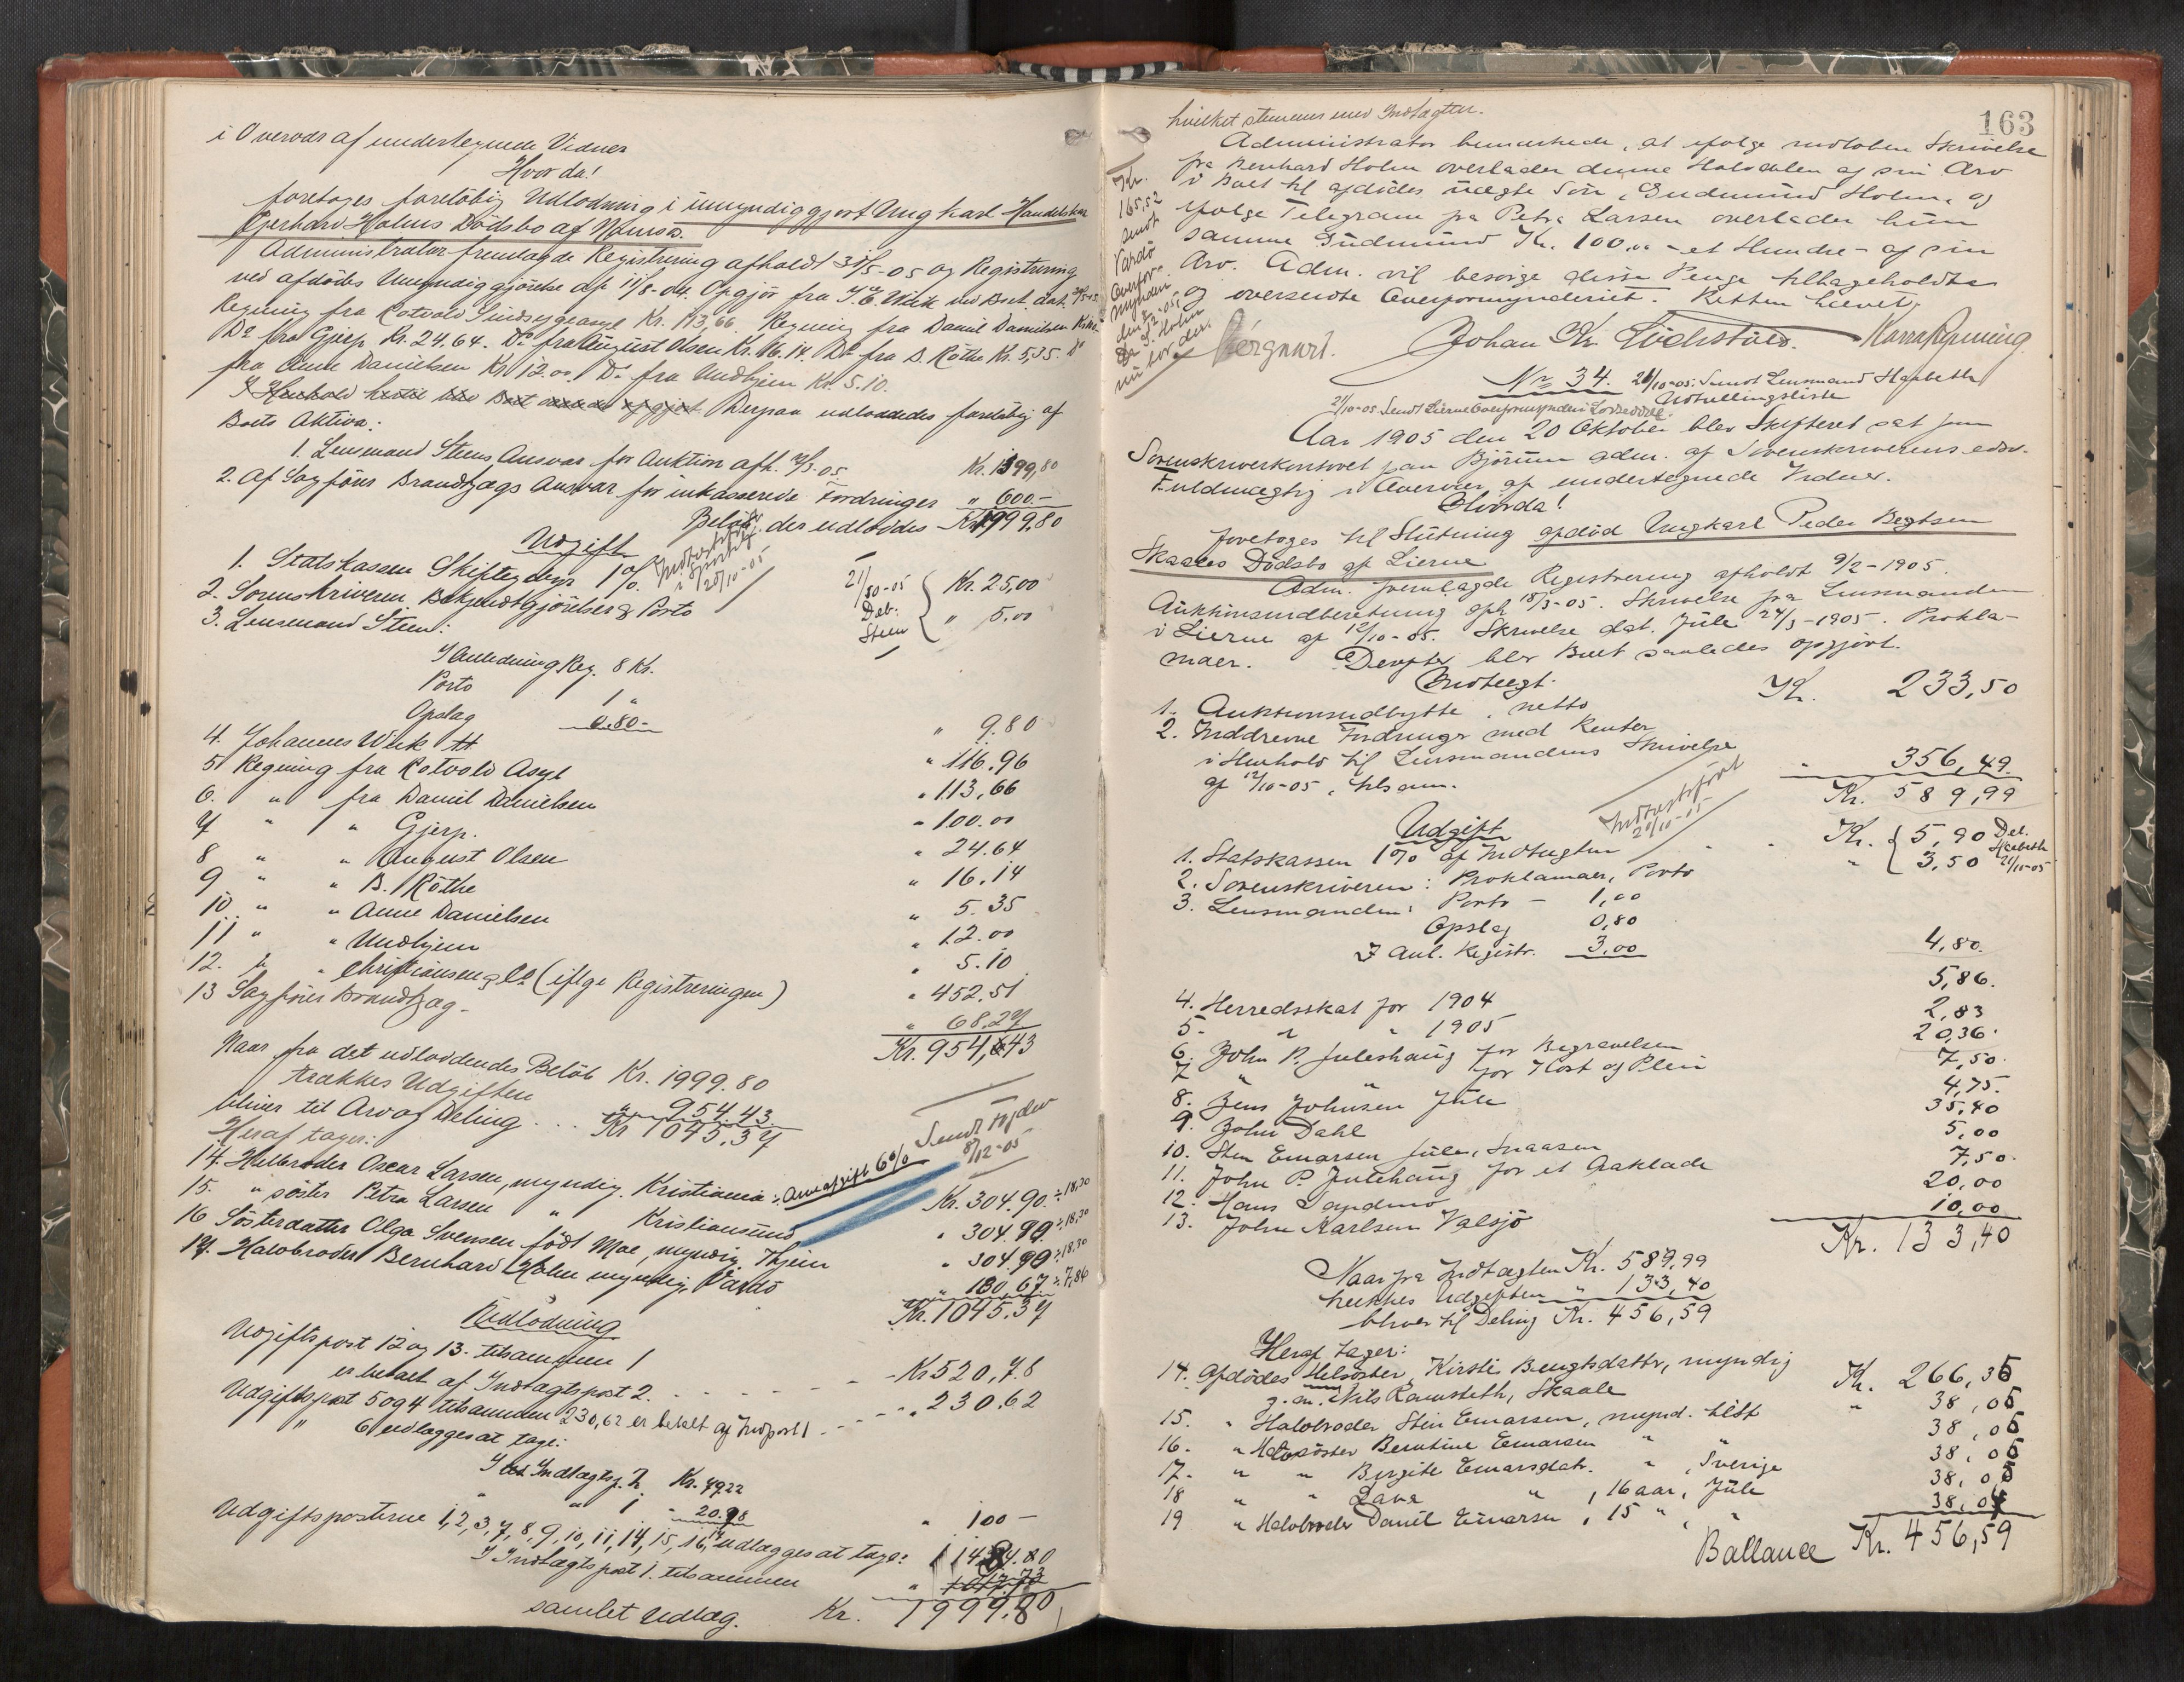 i Overvær af undertegnede Vidner
Hvorda!
foretoges foreløbig Udlodning i umyndiggjort Ungkarl Handelskar
Gjerhard Holms Dödsbo af Namsos.
Administrator fremlagde Registrering afholdt 31/5-05 og Registrering
ved afdødes Umyndiggjörelse af 11/8-04. Opgjör fra J. E. Wiik ved Boet. dat.
Regning fra Rotvold Sindsygeasyl Kr. 113,66. Regning fra Daniel Danielsen Kr.100.
Do fra Gjerp Kr. 24.64. Do fra August Olsen Kr. 16.14. Do fra B. Röthe Kr. 5,35. Do
fra Anne Danielsen Kr. 12.00. Do fra Undhjem Kr. 5.10.
Derpaa udloddedes foreløbig af
Boets Aktiva:
1. Lensmand Steens Ansvar for Auktion afh. 05 Kr. 1399,80
2. Af Sagförer Brandtzægs Ansvar for inkasserede Fordringer " 600.-
Beløb, der udloddes Kr. 1999.80
Udgift
1. Statskassen Skiftegebyr 1% Kr. 25,00
Indtastført i Sportelj 20/10-05
21/10-05 Deb. Steen
2. Sorenskriveren Bekjendtgjörelser & Porto " 5.00
3. Lensmand Steen:
I Anledning Reg. 8 Kr.
Porto 1 "
Opslag 0.80- " 9.80
4. Johannes Wiik " 116.96
5 Regning fra Rotvold Asyl " 113,66
6. " fra Daniel Danielsen " 100.00
7 " " Gjerp. " 24.64
8 " " August Olsen " 16.14
9 " " B. Röthe " 5.35
10 " " Anne Danielsen " 12.00
11 " " Undhjem " 5.10
12. " " Christiansen & Co (iflge Registreringen) " 452.51
13 Sagförer Brandtzæg- " 68.27
Kr. 954,43
Naar fra det udloddendes Beløb Kr. 1999.80
trækkes Udgiften " 954.43.
bliver til Arv og Deling ... Kr 1045.37
Heraf tager:
Sendt Fogden 8/12-05
14. Halbroder Oscar Larsen, myndig. Kristiania ÷ Arveafgift 6% Kr. 304.90. ÷ 18,30
15. " søster Petra Larsen " Kristiansund " 304.90 ÷ 18.30
16 Søsterdatter Olga Svensen født Moe, myndig, Thjem " 304.90 ÷ 18.30
17. Halvbroder Bernhard Holm myndig, Vardø " 130,67 ÷ 7,84
Kr. 1045.37
Udlodning
Udgiftspost 12 og 13. tilsammen
er betalt af Indtægtspost 2. - Kr 520,78
Udgiftspost 5 og 4 tilsammen 230,62 er betalt af Indpost 1 " 230.62
" 6 udlægges at tage:
I Indtægtsp. 2. Kr. 79.22
" " 1 " 20.78 " 100-
Udgiftsposterne 1, 2, 3, 7, 8, 9, 10, 11, 14, 15, 16, 17 udlægges at tage:
I Indtægtspost 1. tilsammen
samlet Udlæg. Kr. 1999.80
163
hvilket stemmer med Indtægten.
Administrator bemærkede, at ifølge indløben Skrivelse
fra Bernhard Holm overlader denne Halvdelen af sin Arv
i Boet til afdødes uægte Sön, Gudmund Holm, og
ifølge Telegram fra Petra Larsen overlader hun
samme Gudmund Kr. 100,00 - et Hundre - af sin
Arv. Adm. vil besørge disse Penge tilbageholdte
og oversendte Overformynderiet. Retten hævet.
Kr. 165,52 sendt Vardö Overformynderi den 2/12-05,
Johan Kr.
No 34. 21/10-05: Sendt Lensmand Skjelbreth
Udstillingsliste
21/10-05 Sendt Lierne Overformynderi
Aar 1905 den 20 Oktober blev Skifteret sat paa
Sorenskriverkontoret paa Bjørum adm. af Sorenskriverens edsv.
Fuldmægtig i Overvær af undertegnede Vidner.
Hvorda!
foretoges til Slutning afdød Ungkarl Peder Bengtsen
Skaales Dödsbo af Lierne
Adm. fremlagde Registrering afholdt 9/2-1905.
Auktionsindberetning afh 18/3-05. Skrivelse fra Lensmanden
i Lierne af 12/10-05. Skrivelse dat. Jule 24/3-1905. Prokla-
maer. Derefter blev Boet saaledes opgjört.
Indtægt.
1. Auktionsudbytte, netto Kr. 233,50
2. Inddrevne Fordringer med Renter
i Henhold til Lensmandens Skrivelse
af 12/10-05, tilsam. " 356,49.
Kr. 589,99
Udgift
Indtastført 20/10-05
1. Statskassen 1% af Indtægten Kr. 5,90 Deb.
2. Sorenskriveren: Proklamaer, Porto " 3,50 21/10-05
3. Lensmanden: Porto - 1,00
Opslag 0,80
I Anl. Registr. 3,00 4,80.
4. Herredsskat for 1904 5,86.
5. " " 1905 2,83
6. John P. Juleshaug for Begravelsen 20,36.
7 " " for Kost og Pleie 7,50.
8. Jens Johnsen Jule 4,75.
9. John Dahl 35,40
10. Sten Einarsen Jule, Snaasen 5,00
11. John P. Juleshaug for et Aaklade 7,50.
12. Hans Sandmo 20,00
13. John Karlsen Valsjö 10,00
Kr. 133,40
Naar fra Indtægten Kr. 589,99
trækkes Udgiften " 133,40
bliver til Deling Kr. 456,59
Heraf tager:
14. Afdødes Helsöster, Kirsti Bengtsdatter, myndig
g. m. Nils Ramsleth, Skaale Kr. 266,35
15. " Halvbroder Sten Einarsen, mynd. " 38,05
16. " Halvsöster Berntine Einarsen " " 38,05
17. " " Birgite Einarsdatr. " , Sverige 38,05
18 " " Lava " , 16 aar, Jule 38,05
19 " Halvbroder Daniel Einarsen, 15 " , " 38,04
Ballance Kr. 456,59